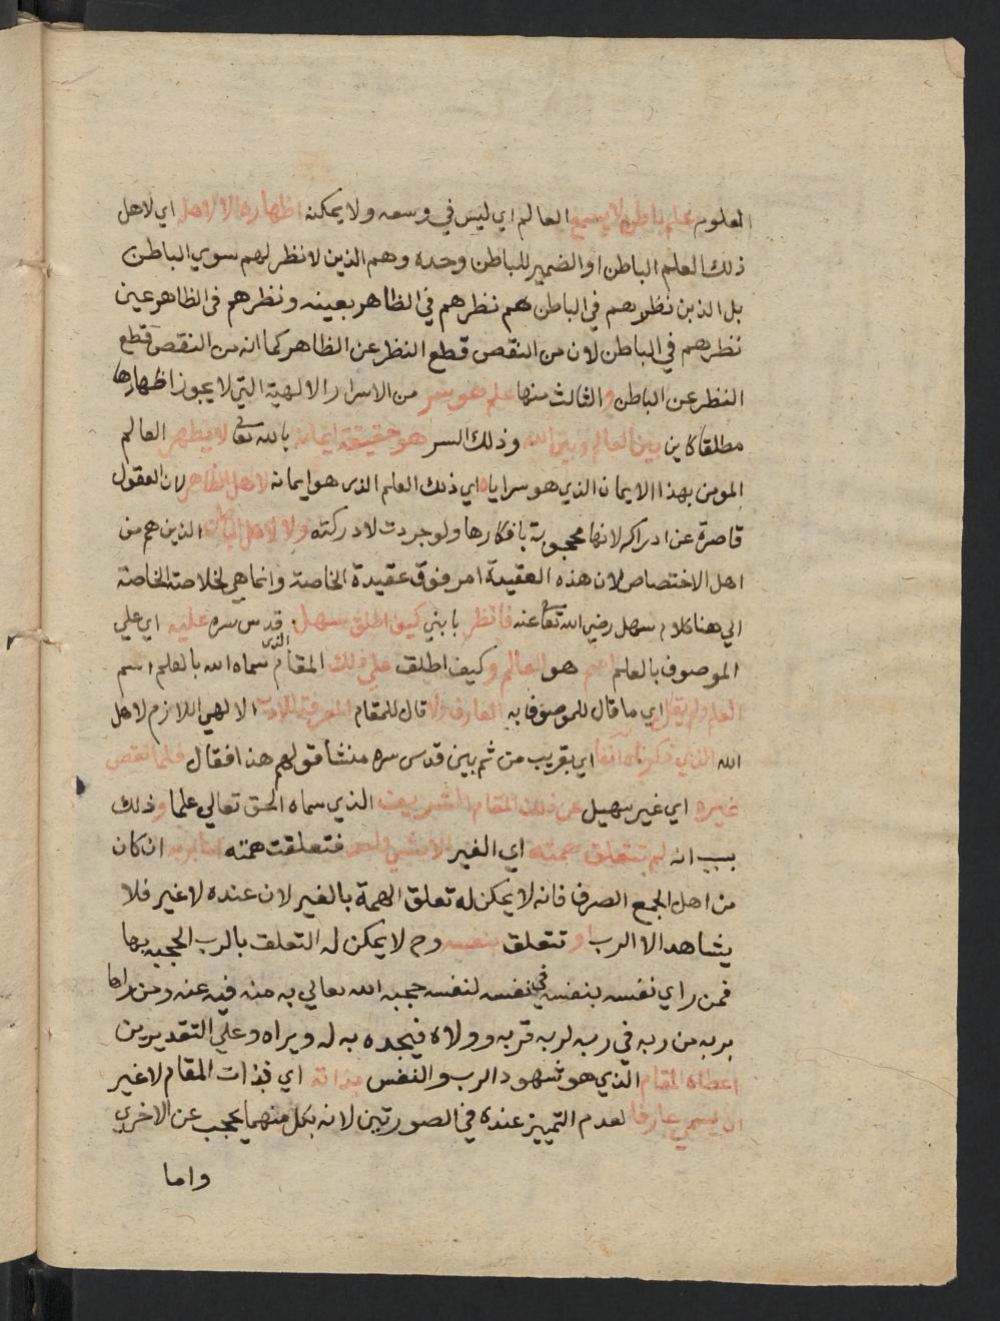 العلوم علم باطن لا يسيع العالم اي ليس في وسعه ولا يمكنه اظهاره الا لاهل اي لاهل
ذلك العلم الباطن او الضمير للباطن وحده وهم الذين لا نظر لهم سوي الباطن
بل الذين نظرهم في الباطن هم نظرهم في الظاهر بعينه ونظرهم في الظاهر عين
نظرهم في الباطن لان من النقص قطع النظر عن الظاهر كما انه من النقص قطع
النظر عن الباطن والثالث منها علم هو سر من الاسرار الالهية التي لا يجوز اظهارها
مطلقا كاين بين العالم وبين الله وذلك السر هو حقيقة ايمانه بالله تعالى لا يظهر العالم
المومن بهذا الايمان الذي هو سر اياه اي ذلك العلم الذي هو ايمانه لاهل الظاهر لان العقول
قاصرة عن ادراكه لانها محجوبة بافكارها ولو جردت لادركته ولا لاهل الباطن الذين هم من
اهل الاختصاص لان هذه العقيدة امر فوق عقيدة الخاصة وانما هي لخلاصة الخاصة
الي هنا كلام سهل رضي الله تعالى عنه فانظر يا بني كيف اطلق سهل قدس سره عليه اي علي
الموصوف بالعلم اسم هو العالم وكيف اطلق علي ذلك المقام الذي سماه الله بالعلم اسم
العلم ولم يقل اي ما قال للموصوف به العارف ولا قال للمقام المعرفة للادب الالهي اللازم لاهل
الله الذي ذكرناه آنفا اي بقريب من ثم بين قدس سره منشا قولهم هذا فقال فلما نقص
غيره اي غير سهيل عن ذلك المقام الشريف الذي سماه الحق تعالي علما وذلك
بسبب انه لم تتعلق همته اي الغير الا بشي واحد فتعلقت همته اما بربه ان كان
من اهل الجمع الصرف فانه لا يمكن له تعلق الهمة بالغير لان عنده لا غير فلا
يشاهد الا الرب او تتعلق بنفسه وح لا يمكن له التعلق بالرب الحجبه بها
فمن راي نفسه بنفسه في نفسه لنفسه حجبه الله تعالي به منه فيه عنه ومن راها
بربه من ربه في ربه لربه قربه وولاه فيجده به له ويراه وعلي التقديرين
اعطاه المقام الذي هو شهود الرب والنفس بذاته اي بذات المقام لا غير
ان يسمي عارفا لعدم التمييز عنده في الصورتين لانه بكل منهما يحجب عن الاخري
واما